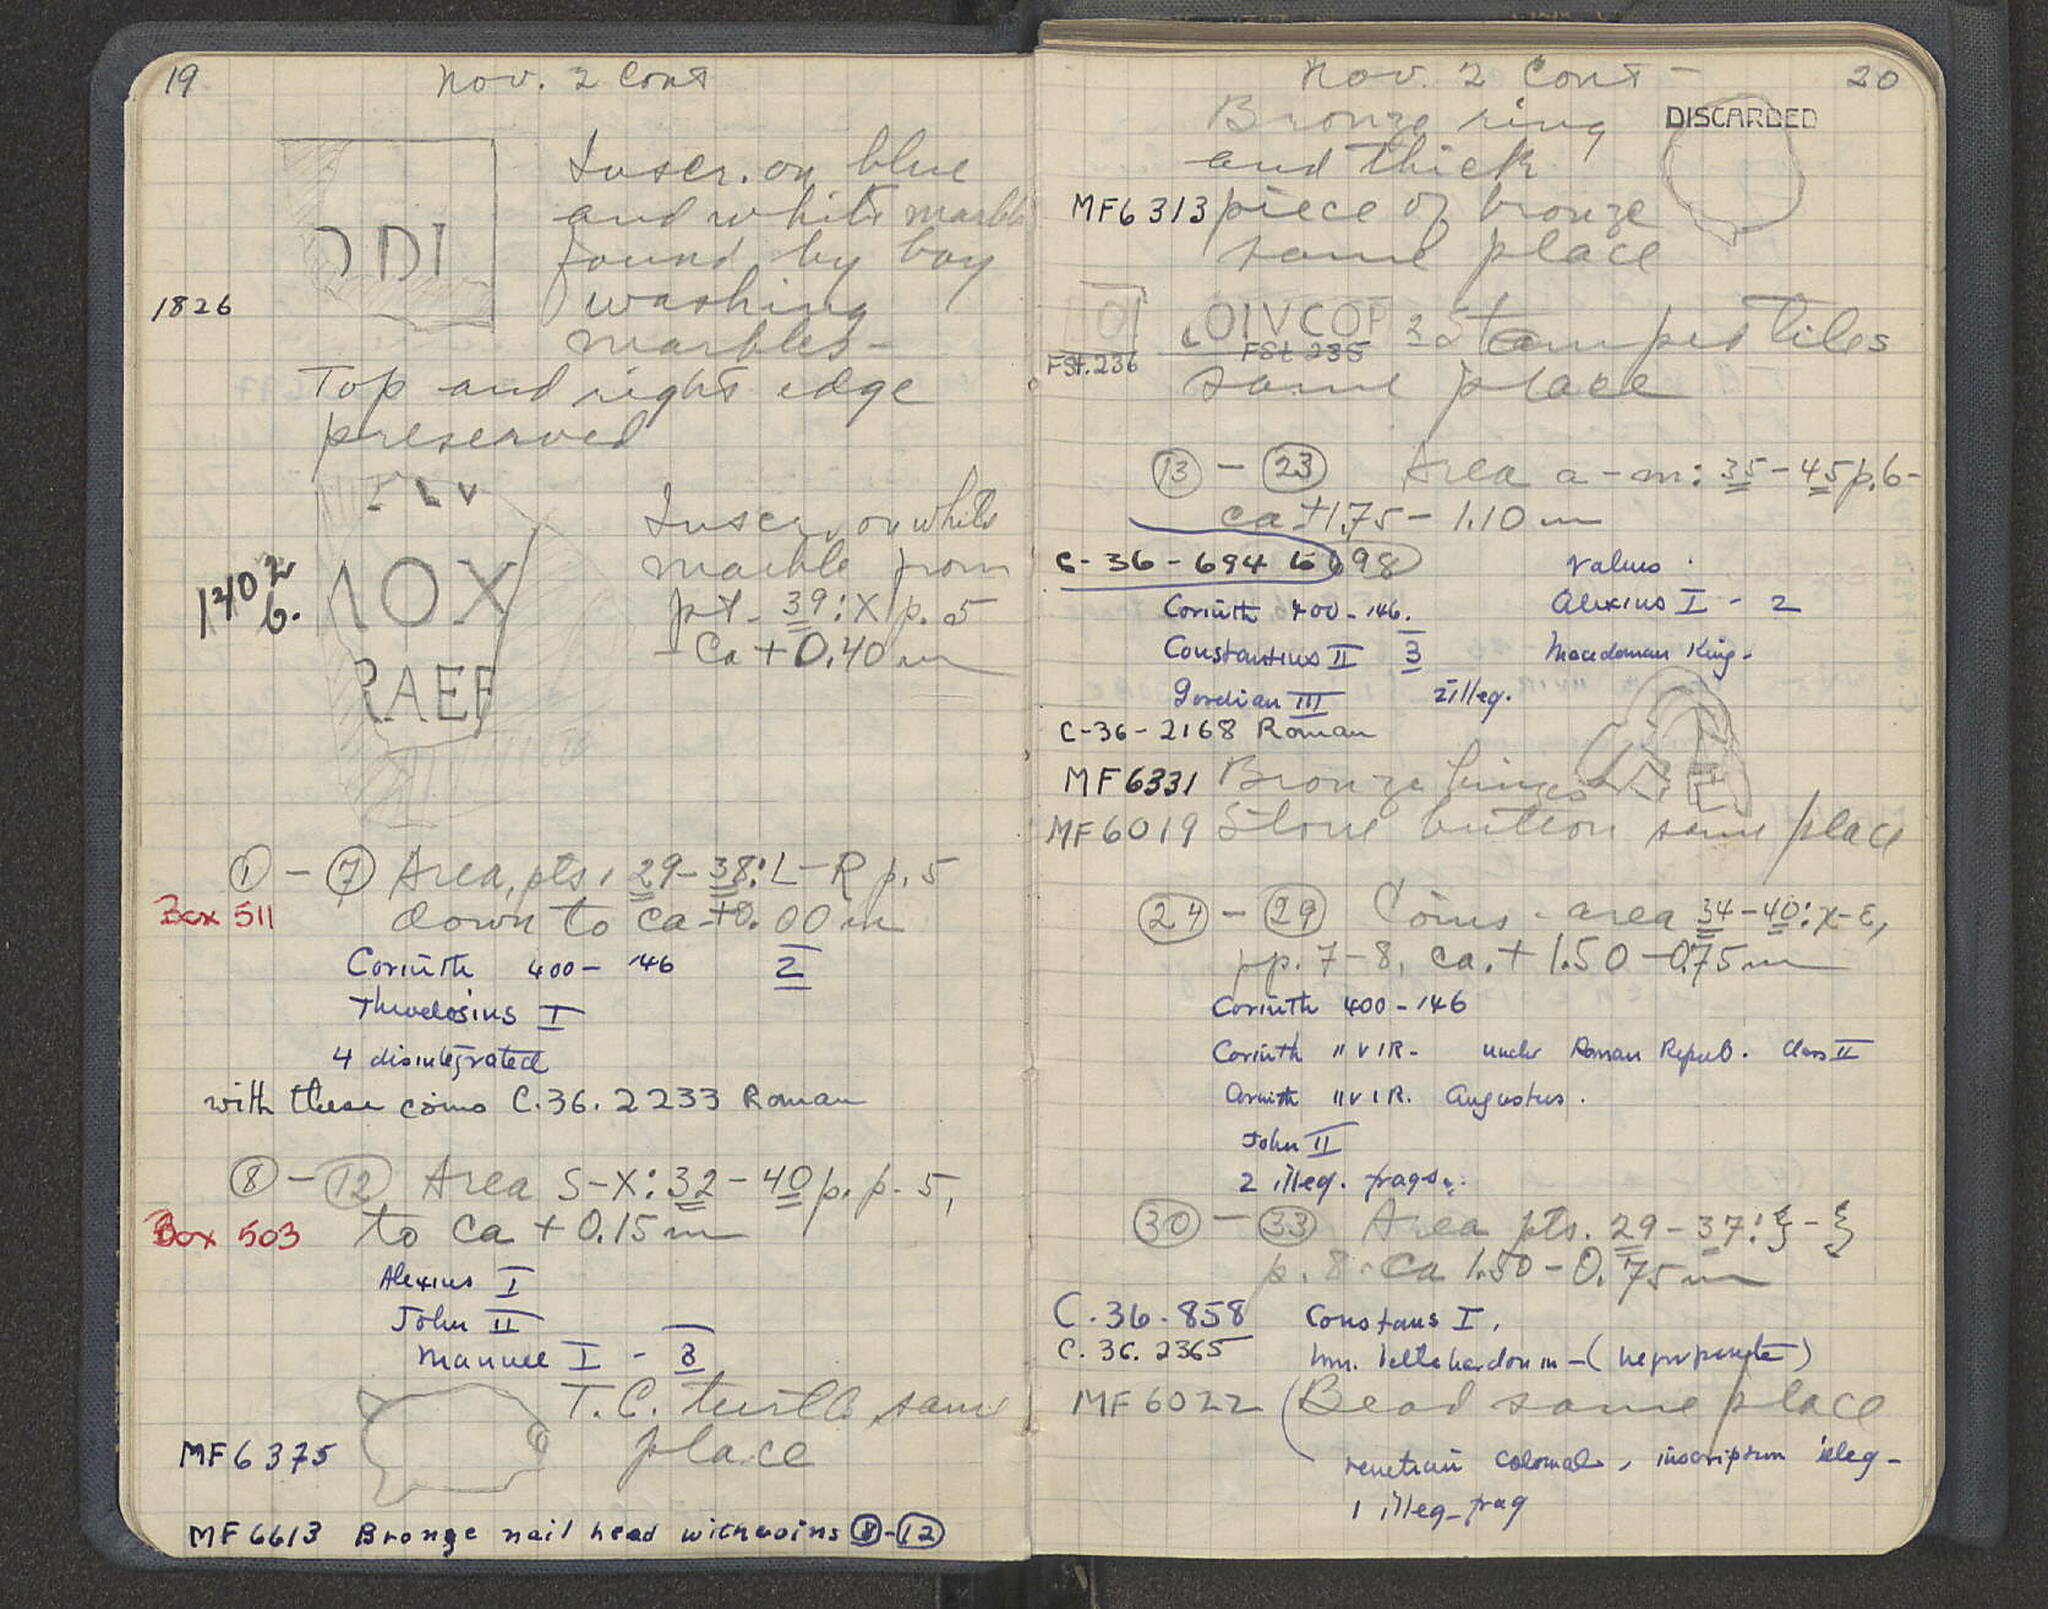 19 Nov. 2 Cont
Inscr. on blue
and white marble
DDI
found by boy
1826
washing
marbles-
Top and right edge
preserved
Inscr. on white
marble from
1402
b.
ΛOX
pt. 39:X p. 5
- Ca + 0.40 m
RAEF
① - ⑦ Area, pts. 29-38:L-R p. 5
Box 511 down to ca ±0.00 m
Corinth 400-146 2
Theodosius I
4 disintegrated
with these coins C.36.2233 Roman
⑧ - ⑫ Area S-X:32-40 p.p. 5,
Box 503 to ca + 0.15 m
Alexius I
John II
Manuel I - 3
T.C. turtle, same
place
MF 6375
MF 6613 Bronze nail head with coins ⑧-⑫
Nov. 2 Cont - 20
Bronze ring DISCARDED
and thick
MF6313 piece of bronze
same place
OIVCOF 2 Stamped tiles
FSt.236 FSt 235
same place
⑬ - ㉓ Area a-m: 35-45 p.6-
ca +1.75 - 1.10 m
C-36-694 to 698
Corinth 400-146.
Alexius I - 2
Constantius II 3
Macedonian King-
Gordian III
2 illeg.
C-36-2168 Roman
MF 6331 Bronze hinges
MF 6019 Stone button same place
㉔ - ㉙ Coins - area 34-40:X-E,
pp. 7-8, ca. + 1.50 - 0.75 m
Corinth 400-146
Corinth II VIR- under Roman Repub. Class II
Corinth II VIR. Augustus.
John II
2 illeg. frags.
㉚ - ㉝ Area pts. 29-37:
p. 8 - Ca 1.50 - 0.75 m
C.36.858 Constans I.
C.36.2365
MF 6022 (Bead same place
Venetian Colonial, inscription illeg-
1 illeg. frag